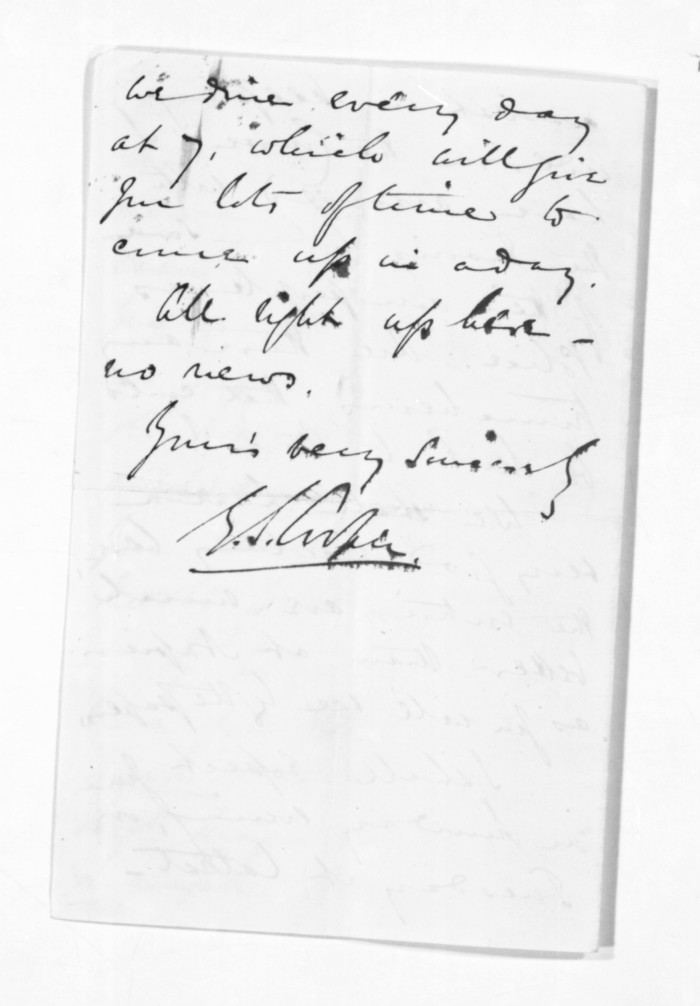 we dine every day
at 7, which will give
you lots of time to
come up in a day.
All right up here –
no news.
Yours very Sincerely
G. S. Cooper